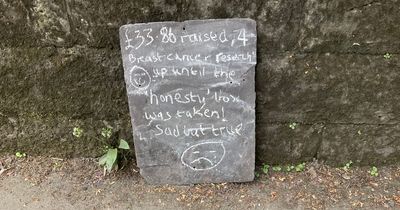 £33.86 raised, 4
Breast cancer research!
up until the
'honesty' box
was taken!
Sad but true